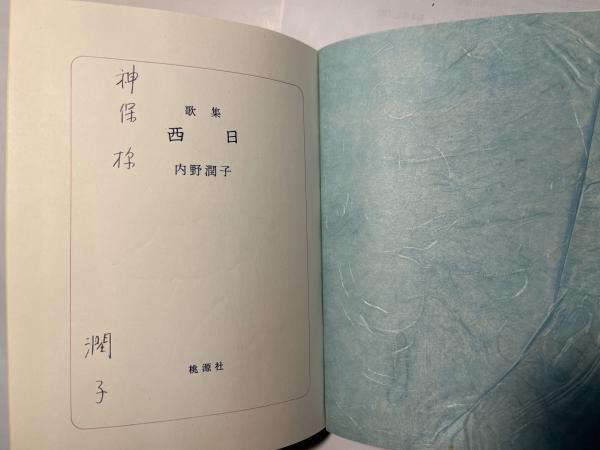 神保様
歌集
西日
内野潤子
桃源社
潤子